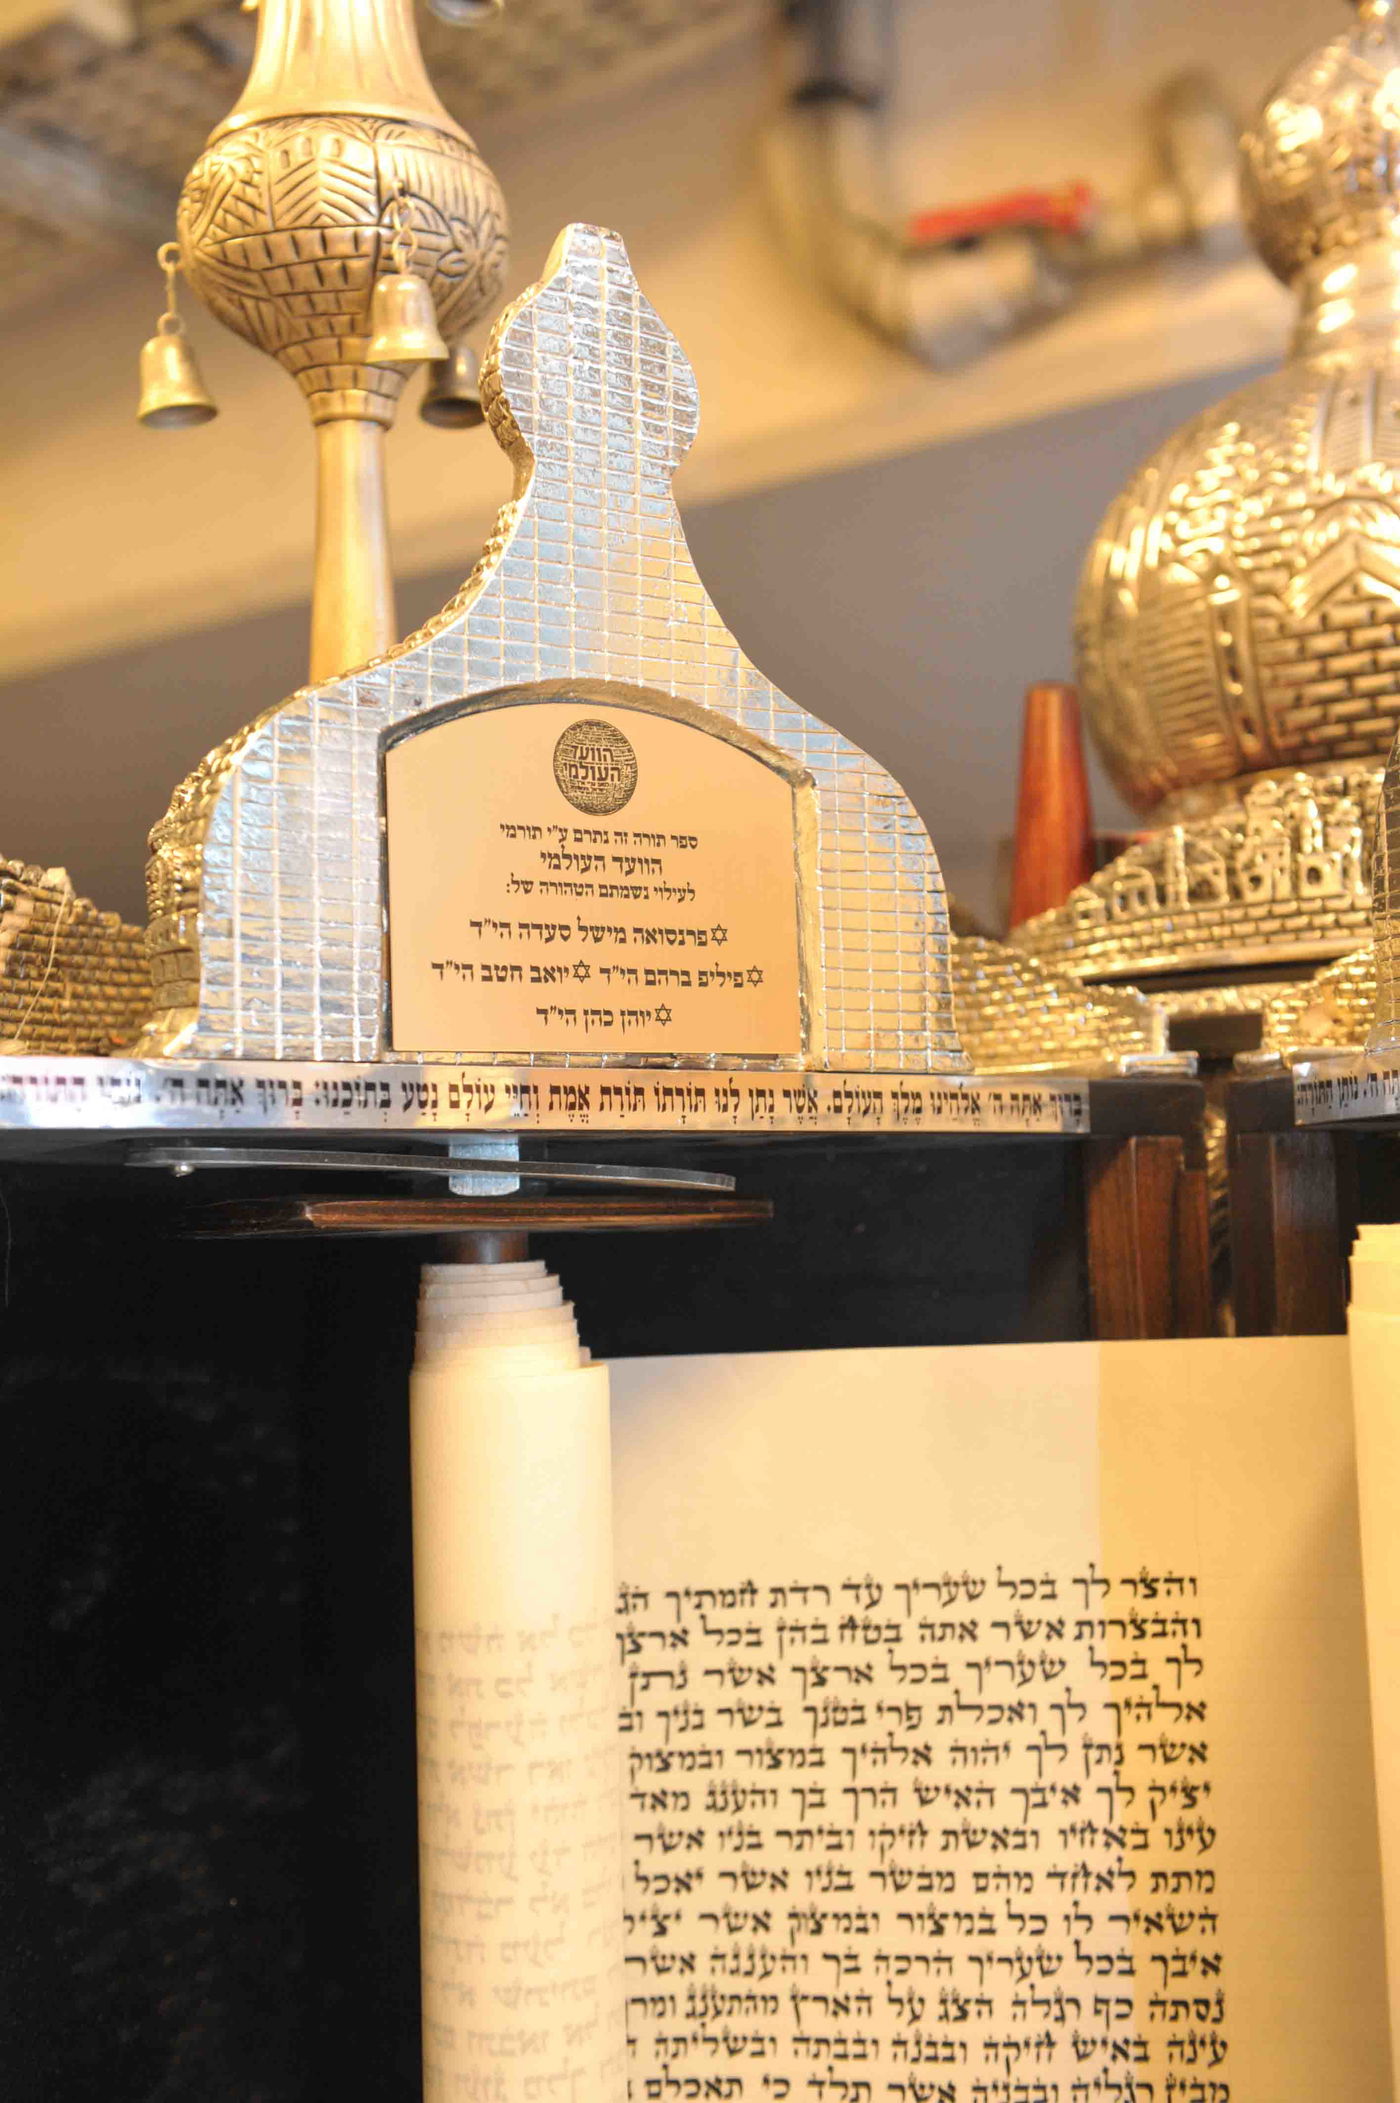 הוועד
העולמי
ספר תורה זה נתרם ע"י תורמי
הוועד העולמי
לעילוי נשמתם הטהורה של:
✡פרנסואה מישל סעדה הי"ד
✡פיליפ ברהם הי"ד ✡יואב חטב הי"ד
✡יוהן כהן הי"ד
בָּרוּךְ אַתָּה ה' אֱלֹהֵינוּ מֶלֶךְ הָעוֹלָם. אֲשֶׁר נָתַן לָנוּ תּוֹרָתוֹ תּוֹרַת אֱמֶת וְחַיֵּי עוֹלָם נָטַע בְּתוֹכֵנוּ: בָּרוּךְ אַתָּה ה'. נוֹתֵן הַתּוֹרָה:
ה'. נוֹתֵן הַתּוֹרָה:
והצר לך בכל שעריך עד רדת חמתיך הג
והבצרות אשר אתה בטח בהן בכל ארצך
לך בכל שעריך בכל ארצך אשר נתן
אלהיך לך ואכלת פרי בטנך בשר בניך וב
אשר נתן לך יהוה אלהיך במצור ובמצוק
יציק לך איבך האיש הרך בך והענג מאד
עינו באחיו ובאשת חיקו וביתר בניו אשר
מתת לאחד מהם מבשר בניו אשר יאכל
השאיר לו כל במצור ובמצוק אשר יציק
איבך בכל שעריך הרכה בך והענגה אשר
נסתה כף רגלה הצג על הארץ מהתענג ומרך
עינה באיש חיקה ובבנה ובבתה ובשליתה ה
מבין רגליה ובבניה אשר תלד כי תאכלם